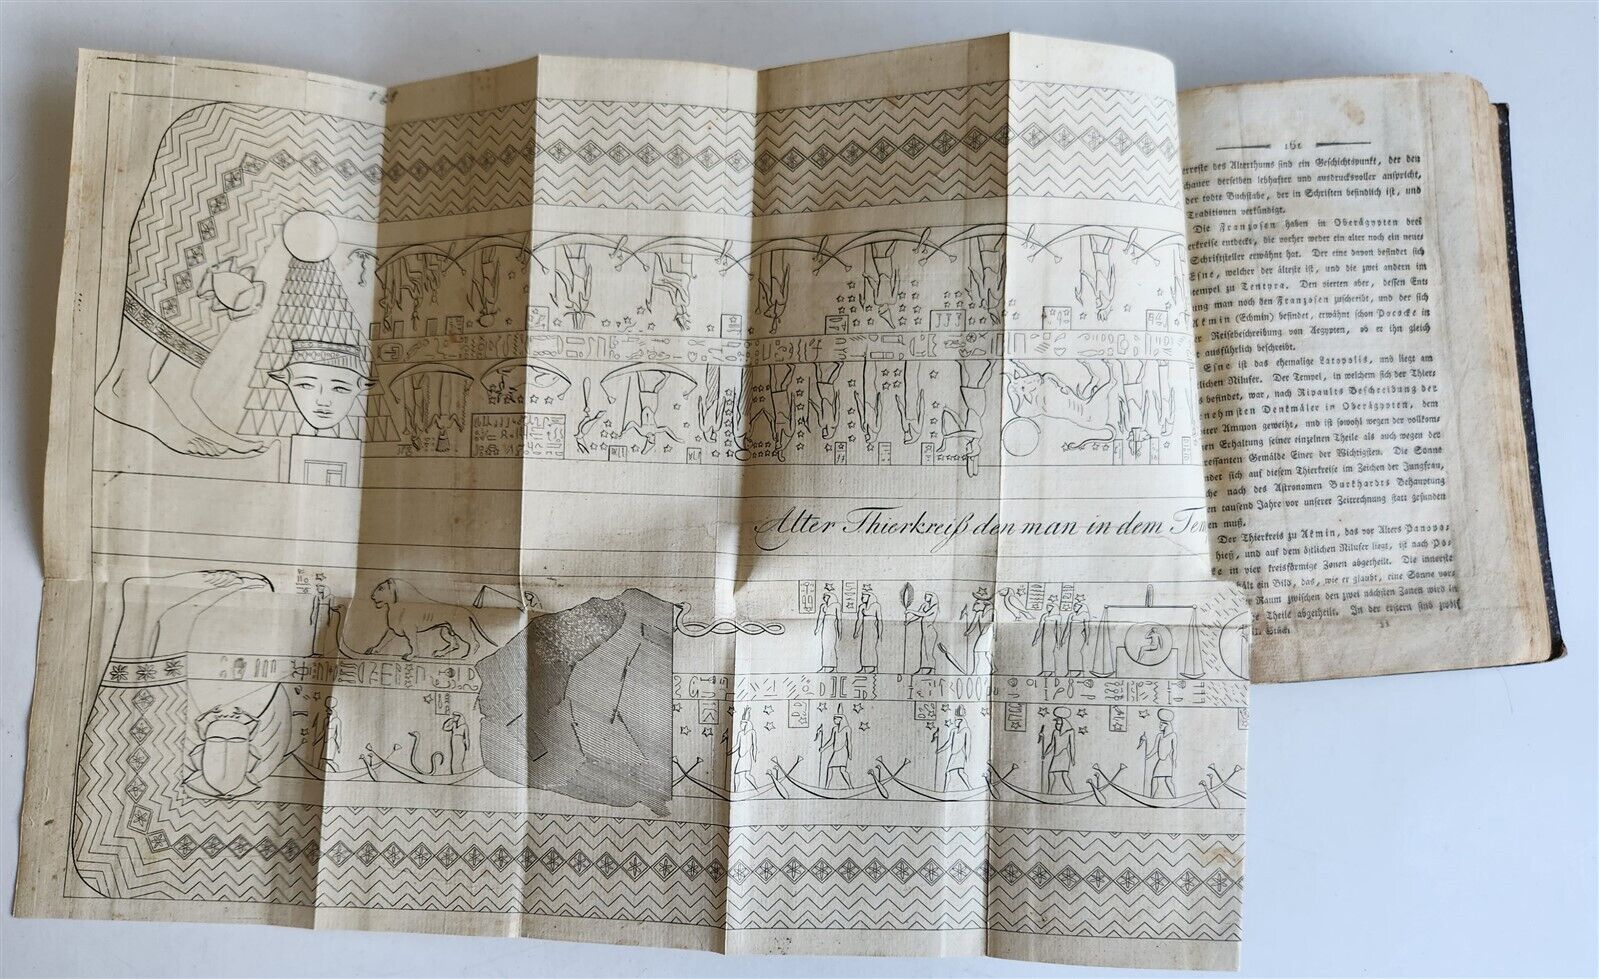 161
Alter Thierkreiß den man in dem Te
161
erreste des Alterthums sind ein Geschichtspunkt, der den
chauer derselben lebhafter und ausdrucksvoller anspricht,
der todte Buchstabe, der in Schriften befindlich ist, und
Traditionen verkündiget.
Die Franzosen haben in Oberägypten drei
erkreise entdeckt, die vorher weder ein alter noch ein neuer
Schriftsteller erwähnt hat. Der eine davon befindet sich
Esne, welcher der älteste ist, und die zwei andern im
tempel zu Tentyra. Den vierten aber, dessen Ent
ung man noch den Franzosen zuschreibt, und der sich
Akmin (Schmin) befindet, erwähnt schon Pococke in
er Reisebeschreibung von Aegypten, ob er ihn gleich
e ausführlich beschreibt.
Esne ist das ehemalige Latopolis, und liegt am
lichen Nilufer. Der Tempel, in welchem sich der Thier
s befindet, war, nach Ripaults Beschreibung der
nehmsten Denkmäler in Oberägypten, dem
iter Ammon geweiht, und ist sowohl wegen der vollkom
en Erhaltung seiner einzelnen Theile als auch wegen der
ressanten Gemälde Einer der Wichtigsten. Die Sonne
ndet sich auf diesem Thierkreise im Zeichen der Jungfrau,
che nach des Astronomen Burkhardts Behauptung
en tausend Jahre vor unserer Zeitrechnung statt gefunden
en muß.
Der Thierkreis zu Akmin, das vor Alters Panopo-
hieß, und auf dem östlichen Nilufer liegt, ist nach Po-
e in vier kreisförmige Zonen abgetheilt. Die innerste
hält ein Bild, das, wie er glaubt, eine Sonne vor
Raum zwischen den zwei nächsten Zonen wird in
e Theile abgetheilt. In der erstern sind zwölf
II. Stück